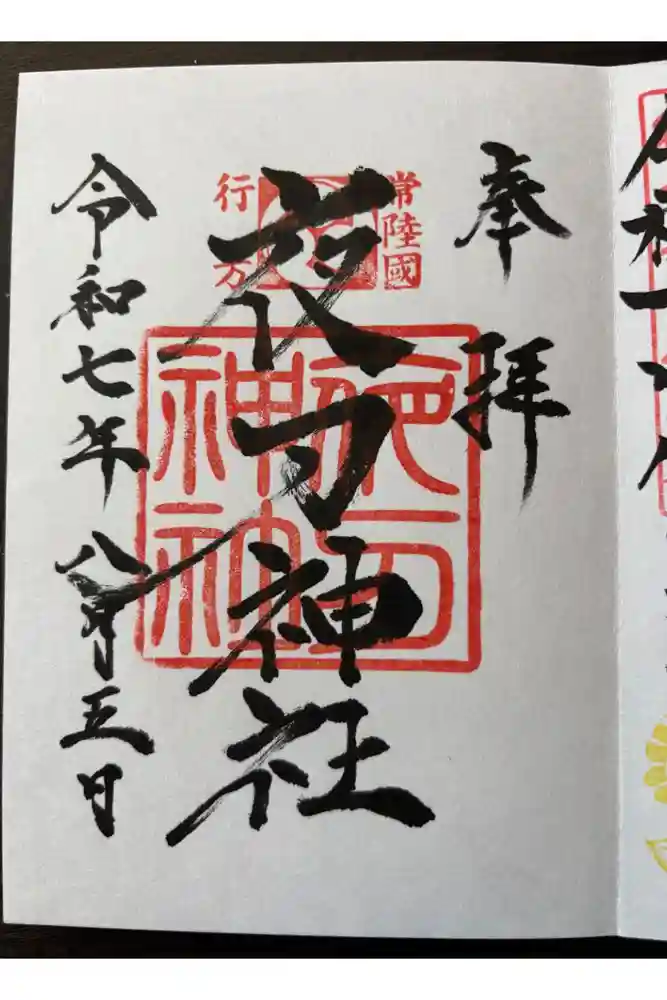 奉拝
常陸國
行方
夜刀神社
夜刀
神社
令和七年八月五日